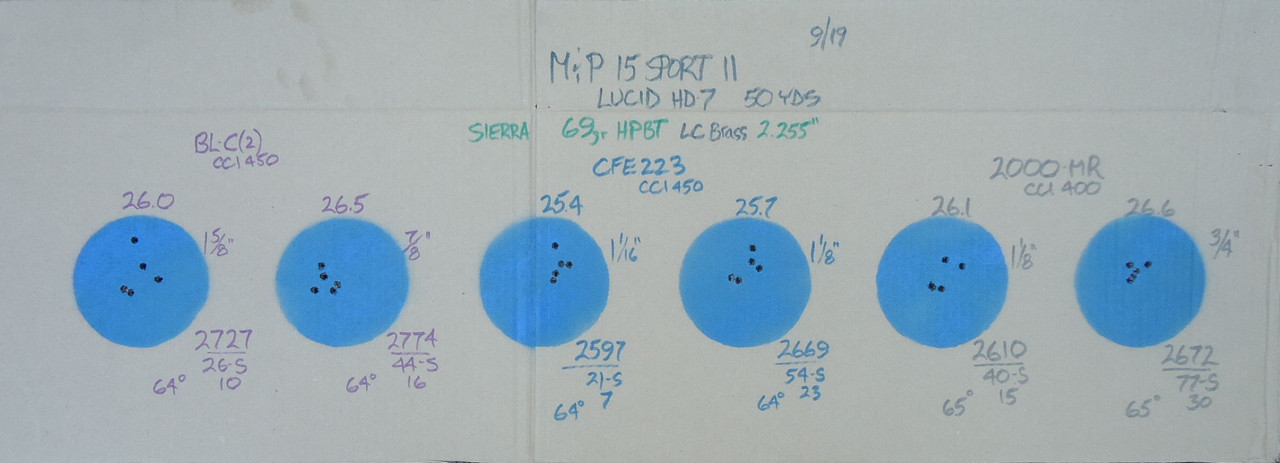 9/19
M&P 15 SPORT II
LUCID HD-7 50 YDS
SIERRA 69gr HPBT LC Brass 2.255"
BL-C(2)
CCI 450
26.0
1 5/8"
2727
26-S
10
64°
26.5
7/8"
2774
44-S
16
64°
CFE 223
CCI 450
25.4
1 1/16"
2597
21-S
7
64°
25.7
1 1/8"
2669
54-S
23
64°
2000-MR
CCI 400
26.1
1 1/8"
2610
40-S
15
65°
26.6
3/4"
2672
77-S
30
65°